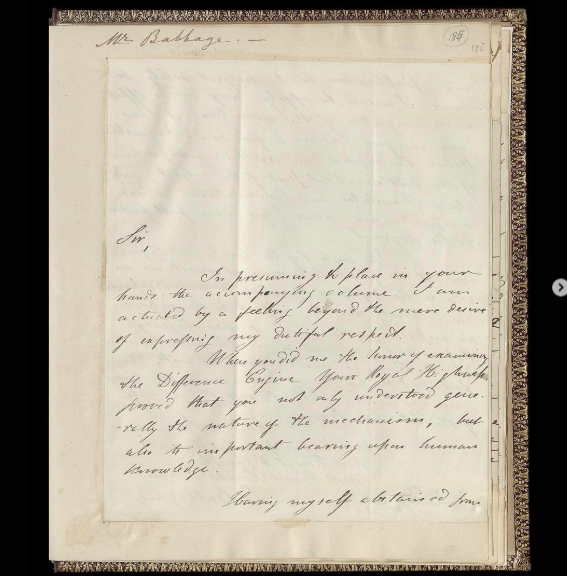 Mr. Babbage. —
185
185
Sir,
In presuming to place in your
hands the accompanying volume I am
actuated by a feeling beyond the mere desire
of expressing my dutiful respect.
When you did me the honor of examining
the Difference Engine Your Royal Highness
proved that you not only understood gene-
-rally the nature of the mechanism, but
also its important bearing upon human
knowledge.
Having myself abstained from